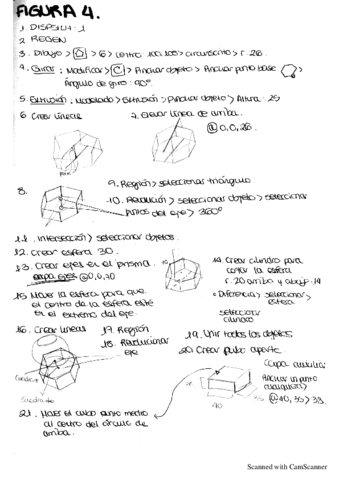 FIGURA 4.
1. DISPSILH: 1
2. REGEN
3. Dibujo > > 6 > centro 100,100 > circunscrito > r. 26.
4. Girar: Modificar > > Pinchar objeto > Pinchar punto base
Ángulo de giro: 90°.
5. Extrusión: Modelado > Extrusión > Pinchar objeto > Altura: 25
6. Crear líneas
7. Crear línea de arriba.
@ 0,0,26.
8.
9. Región > seleccionar triángulo
10. Revolución > seleccionar objeto > seleccionar
puntos del eje > 360°
11. Intersección > seleccionar objetos.
12. Crear esfera 30.
13. Crear ejes en el prisma.
@0,0,20
14 Crear cilindro para
cortar la esfera
r. 20 arriba y abajo 14
• Diferencia > seleccionar
esfera
seleccionar
cilindro
15 Mover la esfera para que
el centro de la esfera esté
en el extremo del eje.
16. Crear líneas
17. Región
18. Revolucionar
eje
19. Unir todos los objetos
20. Crear cubo aparte
Cuadrante
40
@40,35,33.
21. Mover el cubo punto medio
al centro del círculo de
arriba.
Scanned with CamScanner